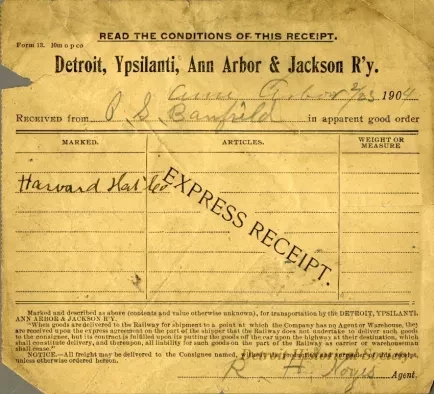 READ THE CONDITIONS OF THIS RECEIPT.
Form 13. 10m o p co
Detroit, Ypsilanti, Ann Arbor & Jackson R'y.
Ann Arbor 2/23 1904
RECEIVED from P S Banfield in apparent good order
MARKED. ARTICLES. WEIGHT OR MEASURE
Harvard Hat Co
EXPRESS RECEIPT.
Marked and described as above (contents and value otherwise unknown), for transportation by the DETROIT, YPSILANTI,
ANN ARBOR & JACKSON R'Y.
"When goods are delivered to the Railway for shipment to a point at which the Company has no Agent or Warehouse, they
are received upon the express agreement on the part of the shipper that the Railway does not undertake to deliver such goods
to the consignee, but its contract is fulfilled upon its putting goods off the car upon the highway at their destination, which
shall constitute delivery, and thereupon, all liability for such goods on the part of the Railway as carrier or warehouseman
shall cease."
NOTICE.—All freight may be delivered to the Consignee named, without the production and surrender of this receipt,
unless otherwise ordered hereon.
R. H. Noyes Agent.